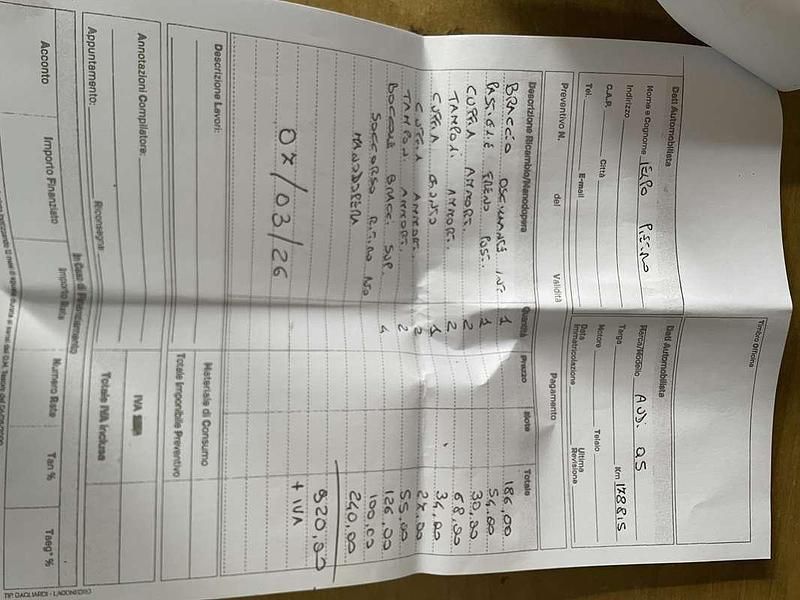 Timbro Officina
Dati Automobilista
Nome e Cognome IELPO PIERO
Indirizzo
C.A.P. Città
Tel. E-mail
Dati Automobilista
Marca/Modello AUDI Q5
Targa Km 178815
Motore Telaio
Data Immatricolazione Ultima Revisione
Preventivo N. del Validità Pagamento
Descrizione Ricambio/Manodopera Quantità Prezzo Note Totale
BRACCIO OSCILLANTE INF. 1 186,00
PASTIGLIE FRENO POST. 1 54,00
CUFFIA AMMORT. 2 30,00
TAMPONI AMMORT. 2 68,00
CUFFIA 1 34,00
CUFFIA AMMORT. 2 27,00
TAMPONI AMMORT. 2 55,00
BOCCOLE BRACCI SUP. 4 126,00
SOCCORSO 100,00
MANODOPERA 240,00
920,00
+ IVA
07/03/26
Descrizione Lavori:
Materiale di Consumo
Totale Imponibile Preventivo
Annotazioni Compilatore:
IVA
Totale IVA Inclusa
Appuntamento: Riconsegna:
In Caso di Finanziamento
Acconto Importo Finanziato Importo Rata Numero Rate Tan % Taeg* %
TIP. GAGLIARDI - LAGONEGRO